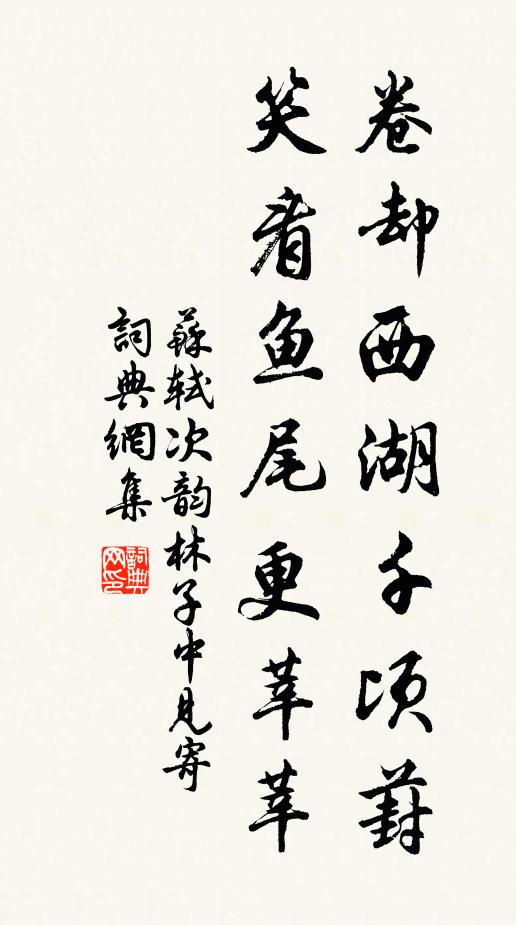 卷却西湖千顷葑
笑看鱼尾更莘莘
蘇軾次韵林子中見寄
詞典網集
詞典网印